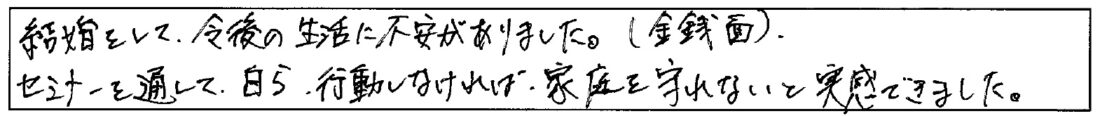 結婚をして、今後の生活に不安がありました。(金銭面).
セミナーを通して、自ら、行動しなければ、家庭を守れないと実感できました。